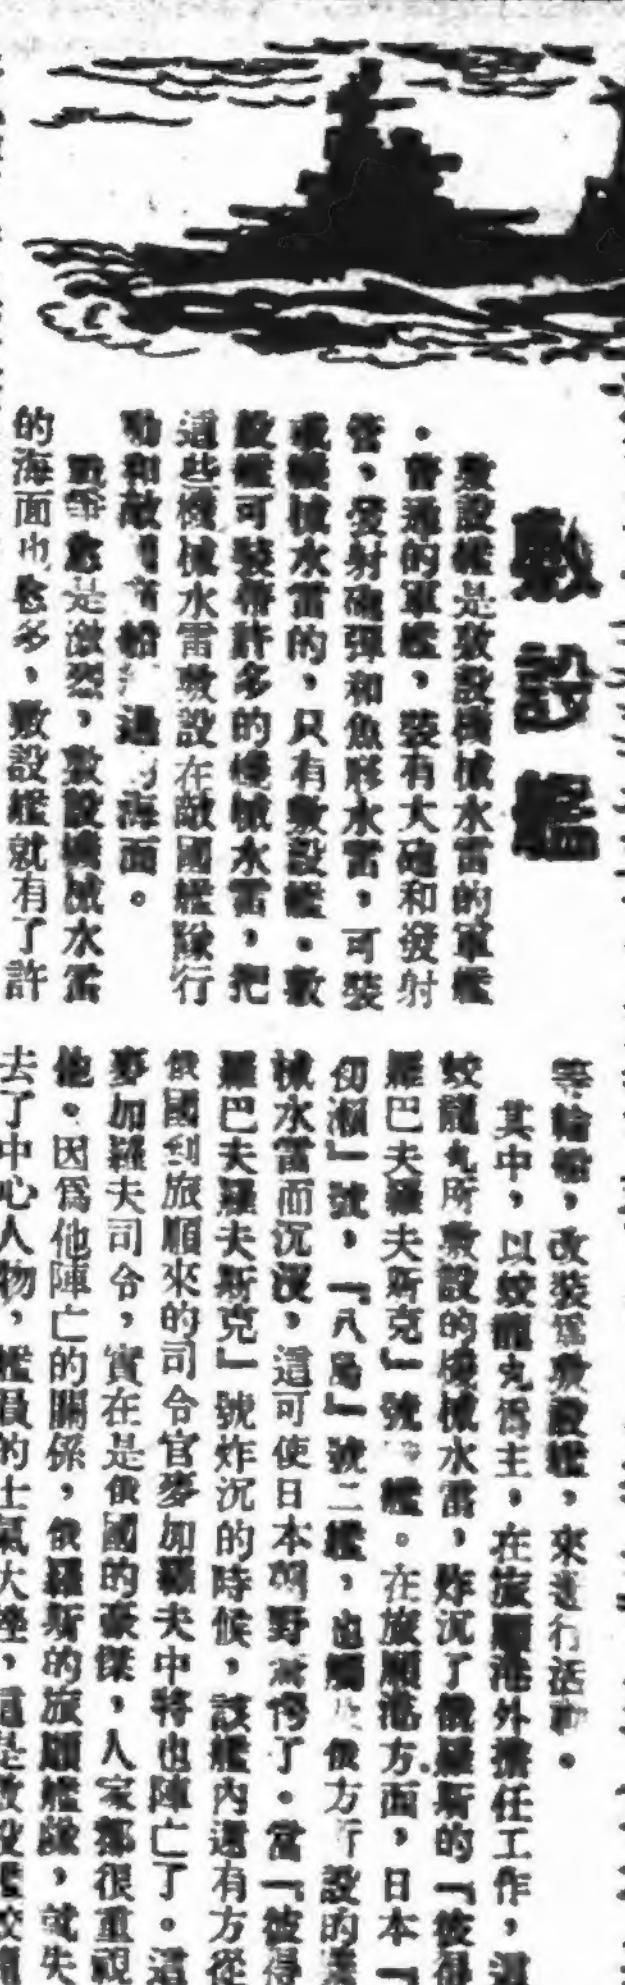 敷設艦
敷設艦是敷設機械水雷的軍艦
。普通的軍艦，裝有大砲和發射
管，發射砲彈和魚形水雷，可裝
載機械水雷的，只有敷設艦。敷
設艦可裝帶許多的機械水雷，把
這些機械水雷敷設在敵國艦隊行
動和敵國商船 過 海面。
戰爭愈是激烈，敷設機械水雷
的海面也愈多，敷設艦就有了許
等輪船，改裝爲敷設艦，來進行活動。
其中，以蛟龍丸爲主，在旅順港外擔任工作，這
蛟龍丸所敷設的機械水雷，炸沉了俄羅斯的「彼得
羅巴夫羅夫斯克」號 艦。在旅順港方面，日本「
初瀨」號，「八島」號二艦，也觸 俄方所設的機
械水雷而沉沒，這可使日本朝野 了。當「彼得
羅巴夫羅夫斯克」號炸沉的時候，該艦內還有方從
俄國到旅順來的司令官麥加羅夫中將也陣亡了。這
麥加羅夫司令，實在是俄國的豪傑，人家都很重視
他。因爲他陣亡的關係，俄羅斯的旅順艦隊，就失
去了中心人物，艦員的士氣大挫，這是敷設艦蛟龍